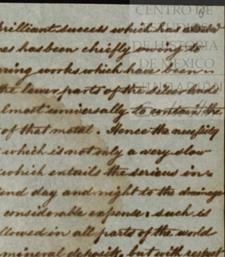 CENTRO DE
ESTUDIOS
DE HISTORIA
DE MÉXICO
brilliant success which has
es has been chiefly owing to
ring works which have been
the lower parts of the
almost universally to contain the
of that metal. Hence the necessity
which is not only a very slow
which entails the serious in
and day and night to the drainage
considerable expense: such is
llowed in all parts of the world
mineral deposits, but with respect